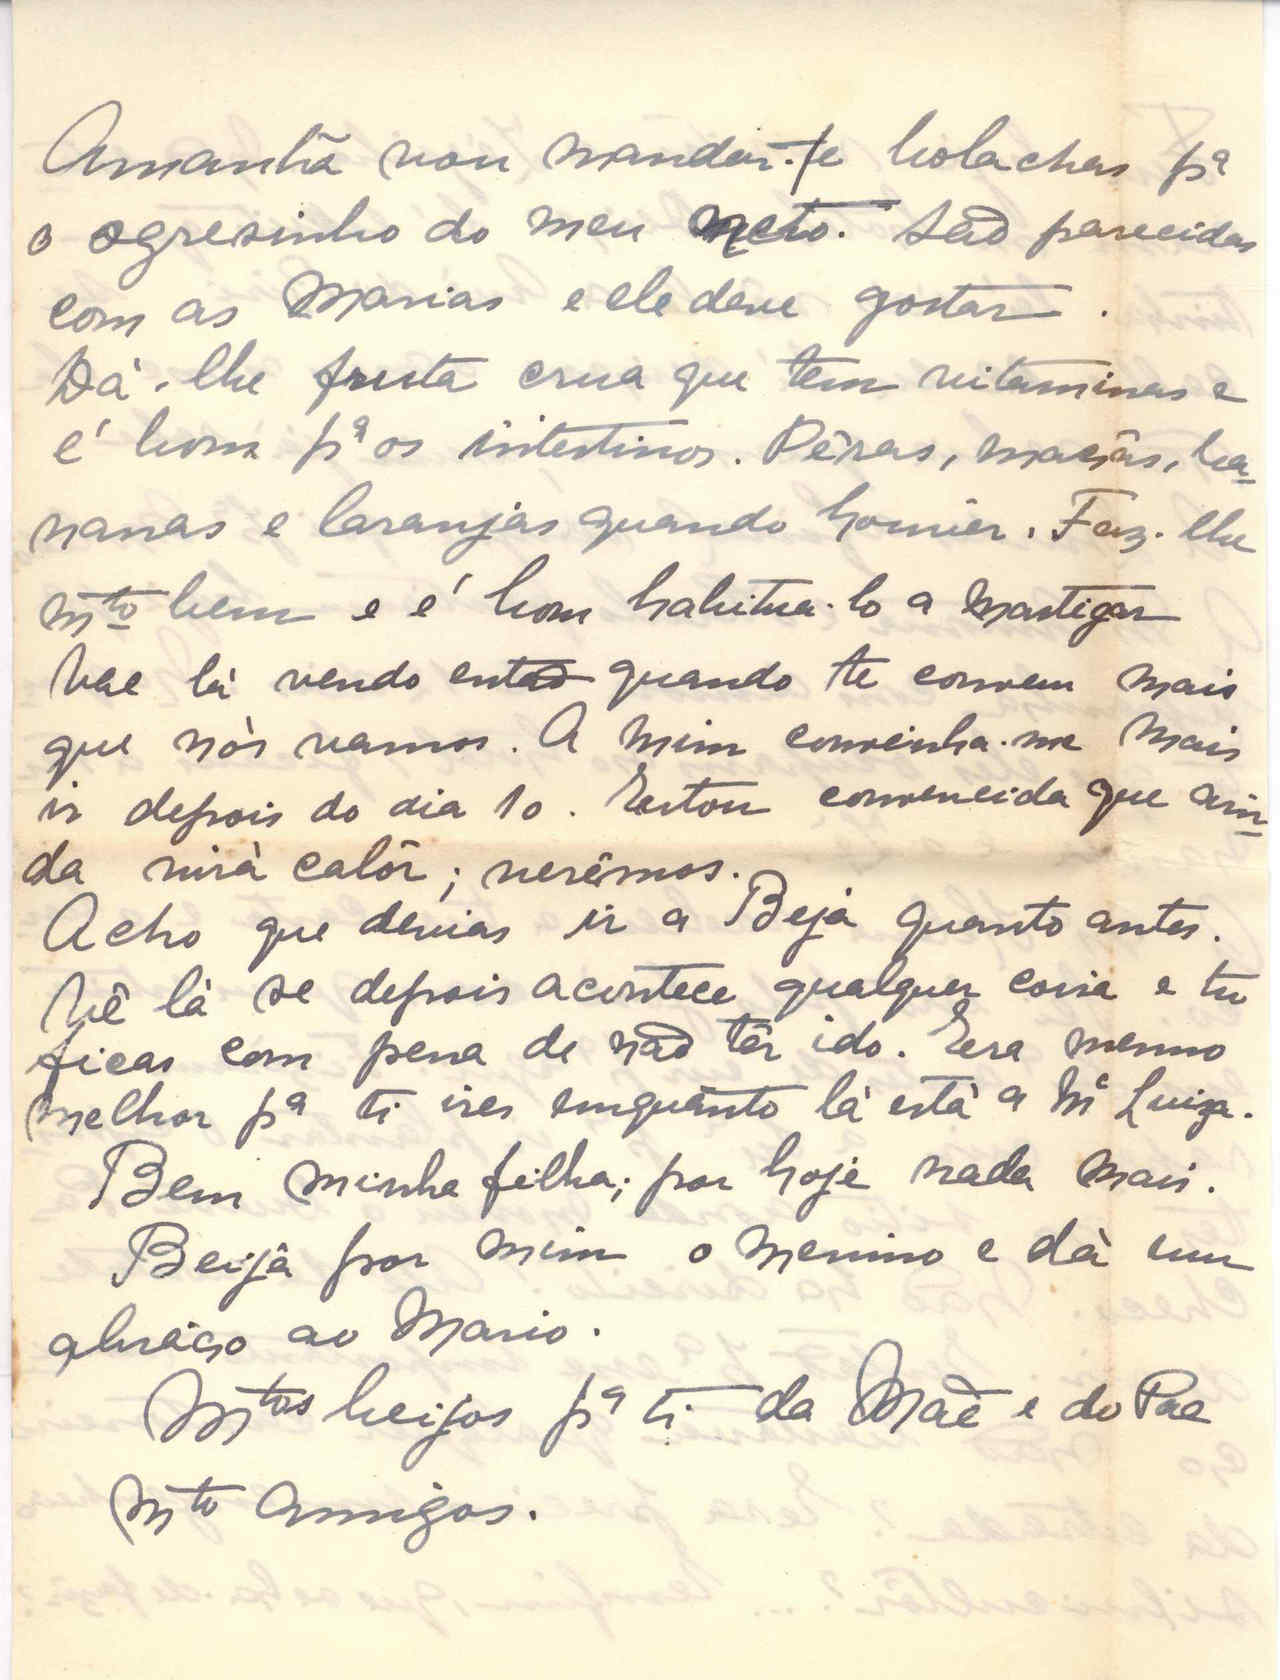 Amanhã vou mandar-te bolachas pª
o ogresinho do meu neto. São parecidas
com as Marias e ele deve gostar.
Dá-lhe fruta crua que tem vitaminas e
é bom pª os intestinos. Pêras, maçãs, ba-
nanas e laranjas quando houvér. Faz-lhe
mto bem e é bom habitua-lo a mastigar
Vae lá vendo então quando te convem mais
que nós vamos. A mim convinha-me mais
ir depois do dia 10. Estou convencida que ain-
da virá calôr; verêmos.
Acho que devias ir a Beja quanto antes.
Vê lá se depois acontece qualquer coisa e tu
ficas com pena de não têr ido. Era mesmo
melhor pª ti ires enquanto lá está a Mª Luiza.
Bem minha filha; por hoje nada mais.
Beija por mim o menino e dà um
abraço ao Mario.
Mtos beijos pª ti da Mãe e do Pae
mto amigos.